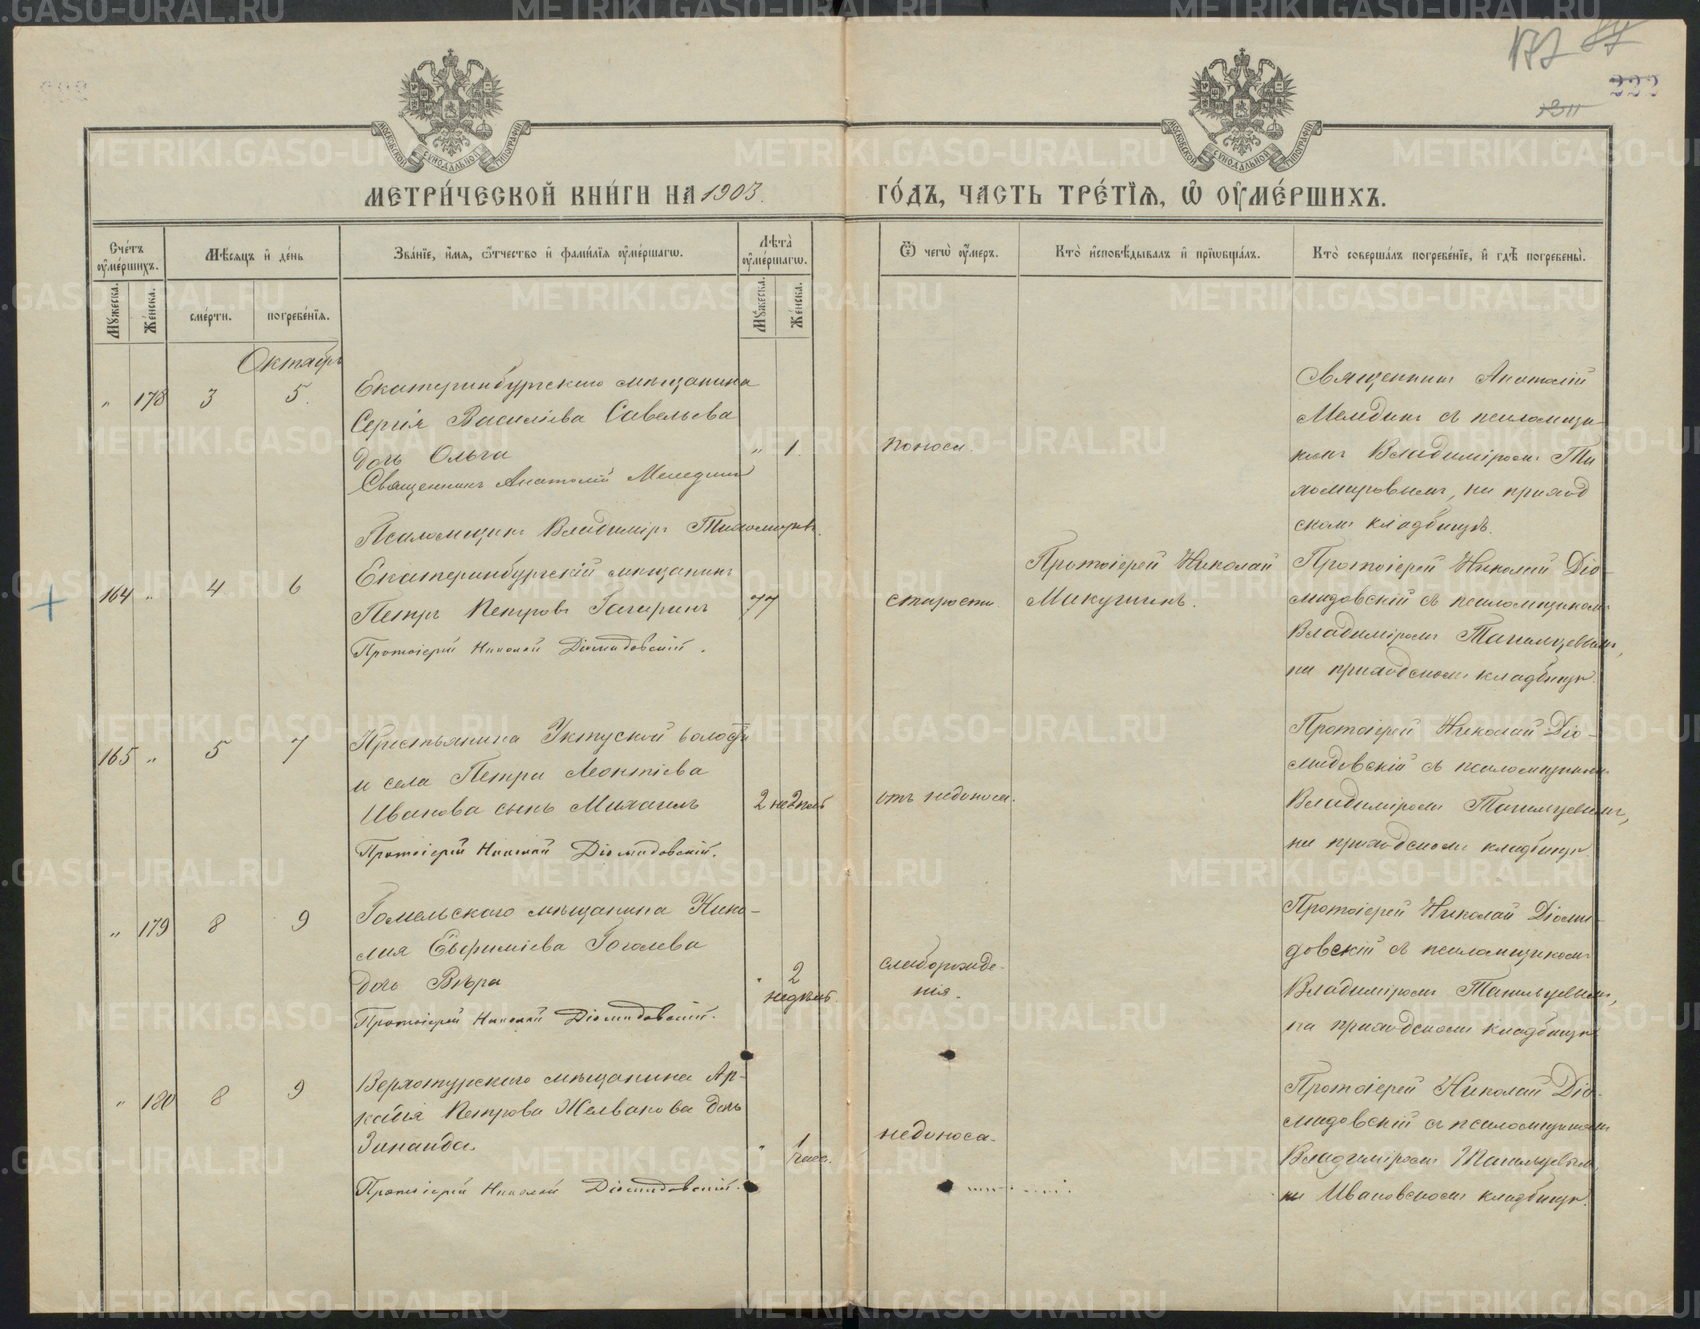 222
МОСКОВСКОЙ СУНОДАЛЬНОЙ ТИПОГРАФІИ
МОСКОВСКОЙ СУНОДАЛЬНОЙ ТИПОГРАФІИ
МЕТРИ́ЧЕСКОЙ КНИ́ГИ НА 1903.
ГО́ДЪ, ЧАСТЬ ТРЕ́ТЇѦ, Ѡ҆ ОУ҆МЕ́РШИХЪ.
Сче́тъ оу҆ме́ршихъ.
Мꙋ́жеска.
Же́нска.
Мѣ́сѧцъ и҆ де́нь
сме́рти.
погребе́нїѧ.
Зва́нїе, и҆́мѧ, ѻ҆́тчество и҆ фами́лїѧ оу҆ме́ршагѡ.
Лѣта̀ оу҆ме́ршагѡ.
Мꙋ́жеска.
Же́нска.
Ѿ чегѡ̀ оу҆́меръ.
Кто̀ и҆сповѣ́дывалъ и҆ прїѡбща́лъ.
Кто̀ соверша́лъ погребе́нїе, и҆ гдѣ̀ погребены̀.
Октябрь
„ 178 3 5.
Екатеринбургскаго мѣщанина
Сергія Василіева Савельева
дочь Ольга
„ 1.
поноса.
Священникъ Анатолій Меледин
Псаломщикъ Владиміръ Тихомировъ.
Священникъ Анатолій
Меледин съ псаломщи-
комъ Владиміромъ Ти
хомировымъ, на приход
скомъ кладбищѣ.
164 „ 4 6
Екатеринбургскій мѣщанинъ
Петръ Петровъ Гагаринъ
77
старости.
Протоіерей Николай Діомидовскій.
Протоіерей Николай
Микушинъ.
Протоіерей Николай Діо-
мидовскій съ псаломщикомъ
Владиміромъ Тагильцевымъ,
на приходскомъ кладбищѣ.
165 „ 5 7
Крестьянина Уктуской волости
и села Петра Леонтіева
Иванова сынъ Михаилъ
2 недѣль
отъ недоноса.
Протоіерей Николай Діомидовскій.
Протоіерей Николай Діо-
мидовскій съ псаломщикомъ
Владиміромъ Тагильцевымъ,
на приходскомъ кладбищѣ.
„ 179 8 9
Гомельскаго мѣщанина Нико-
лая Евфиміева Гоголева
дочь Вѣра
„ 2 недѣль.
слаборожде-
нія.
Протоіерей Николай Діомидовскій.
Протоіерей Николай Діоми-
довскій съ псаломщикомъ
Владиміромъ Тагильцевымъ,
на приходскомъ кладбищѣ
„ 180 8 9
Верхотурскаго мѣщанина Ар-
кадія Петрова Желвакова дочь
Зинаида.
„ 1 часъ.
недоноса.
Протоіерей Николай Діомидовскій.
Протоіерей Николай Діо-
мидовскій съ псаломщикомъ
Владиміромъ Тагильцевымъ,
на Ивановскомъ кладбищѣ.
METRIKI.GASO-URAL.RU